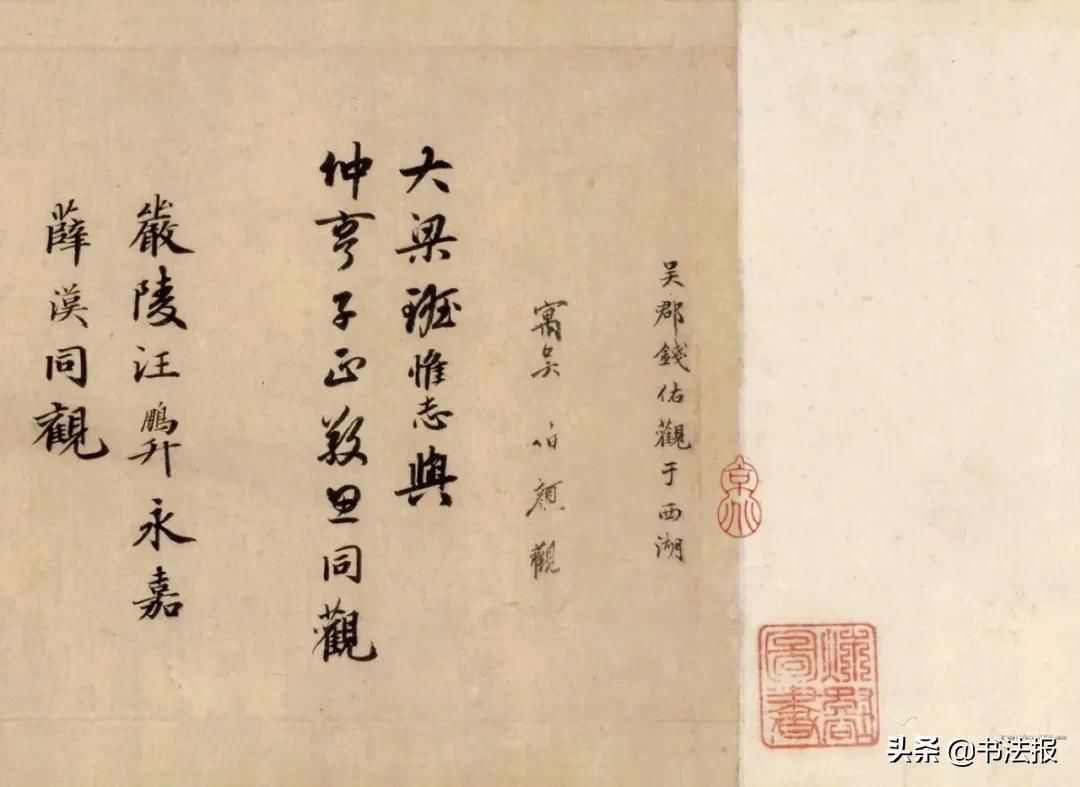 吳郡錢佑觀于西湖
寓吳伯顏觀
大梁班惟志與
仲亨子正同觀
嚴陵汪鵬升永嘉
薛漢同觀
圖書
头条 @书法报